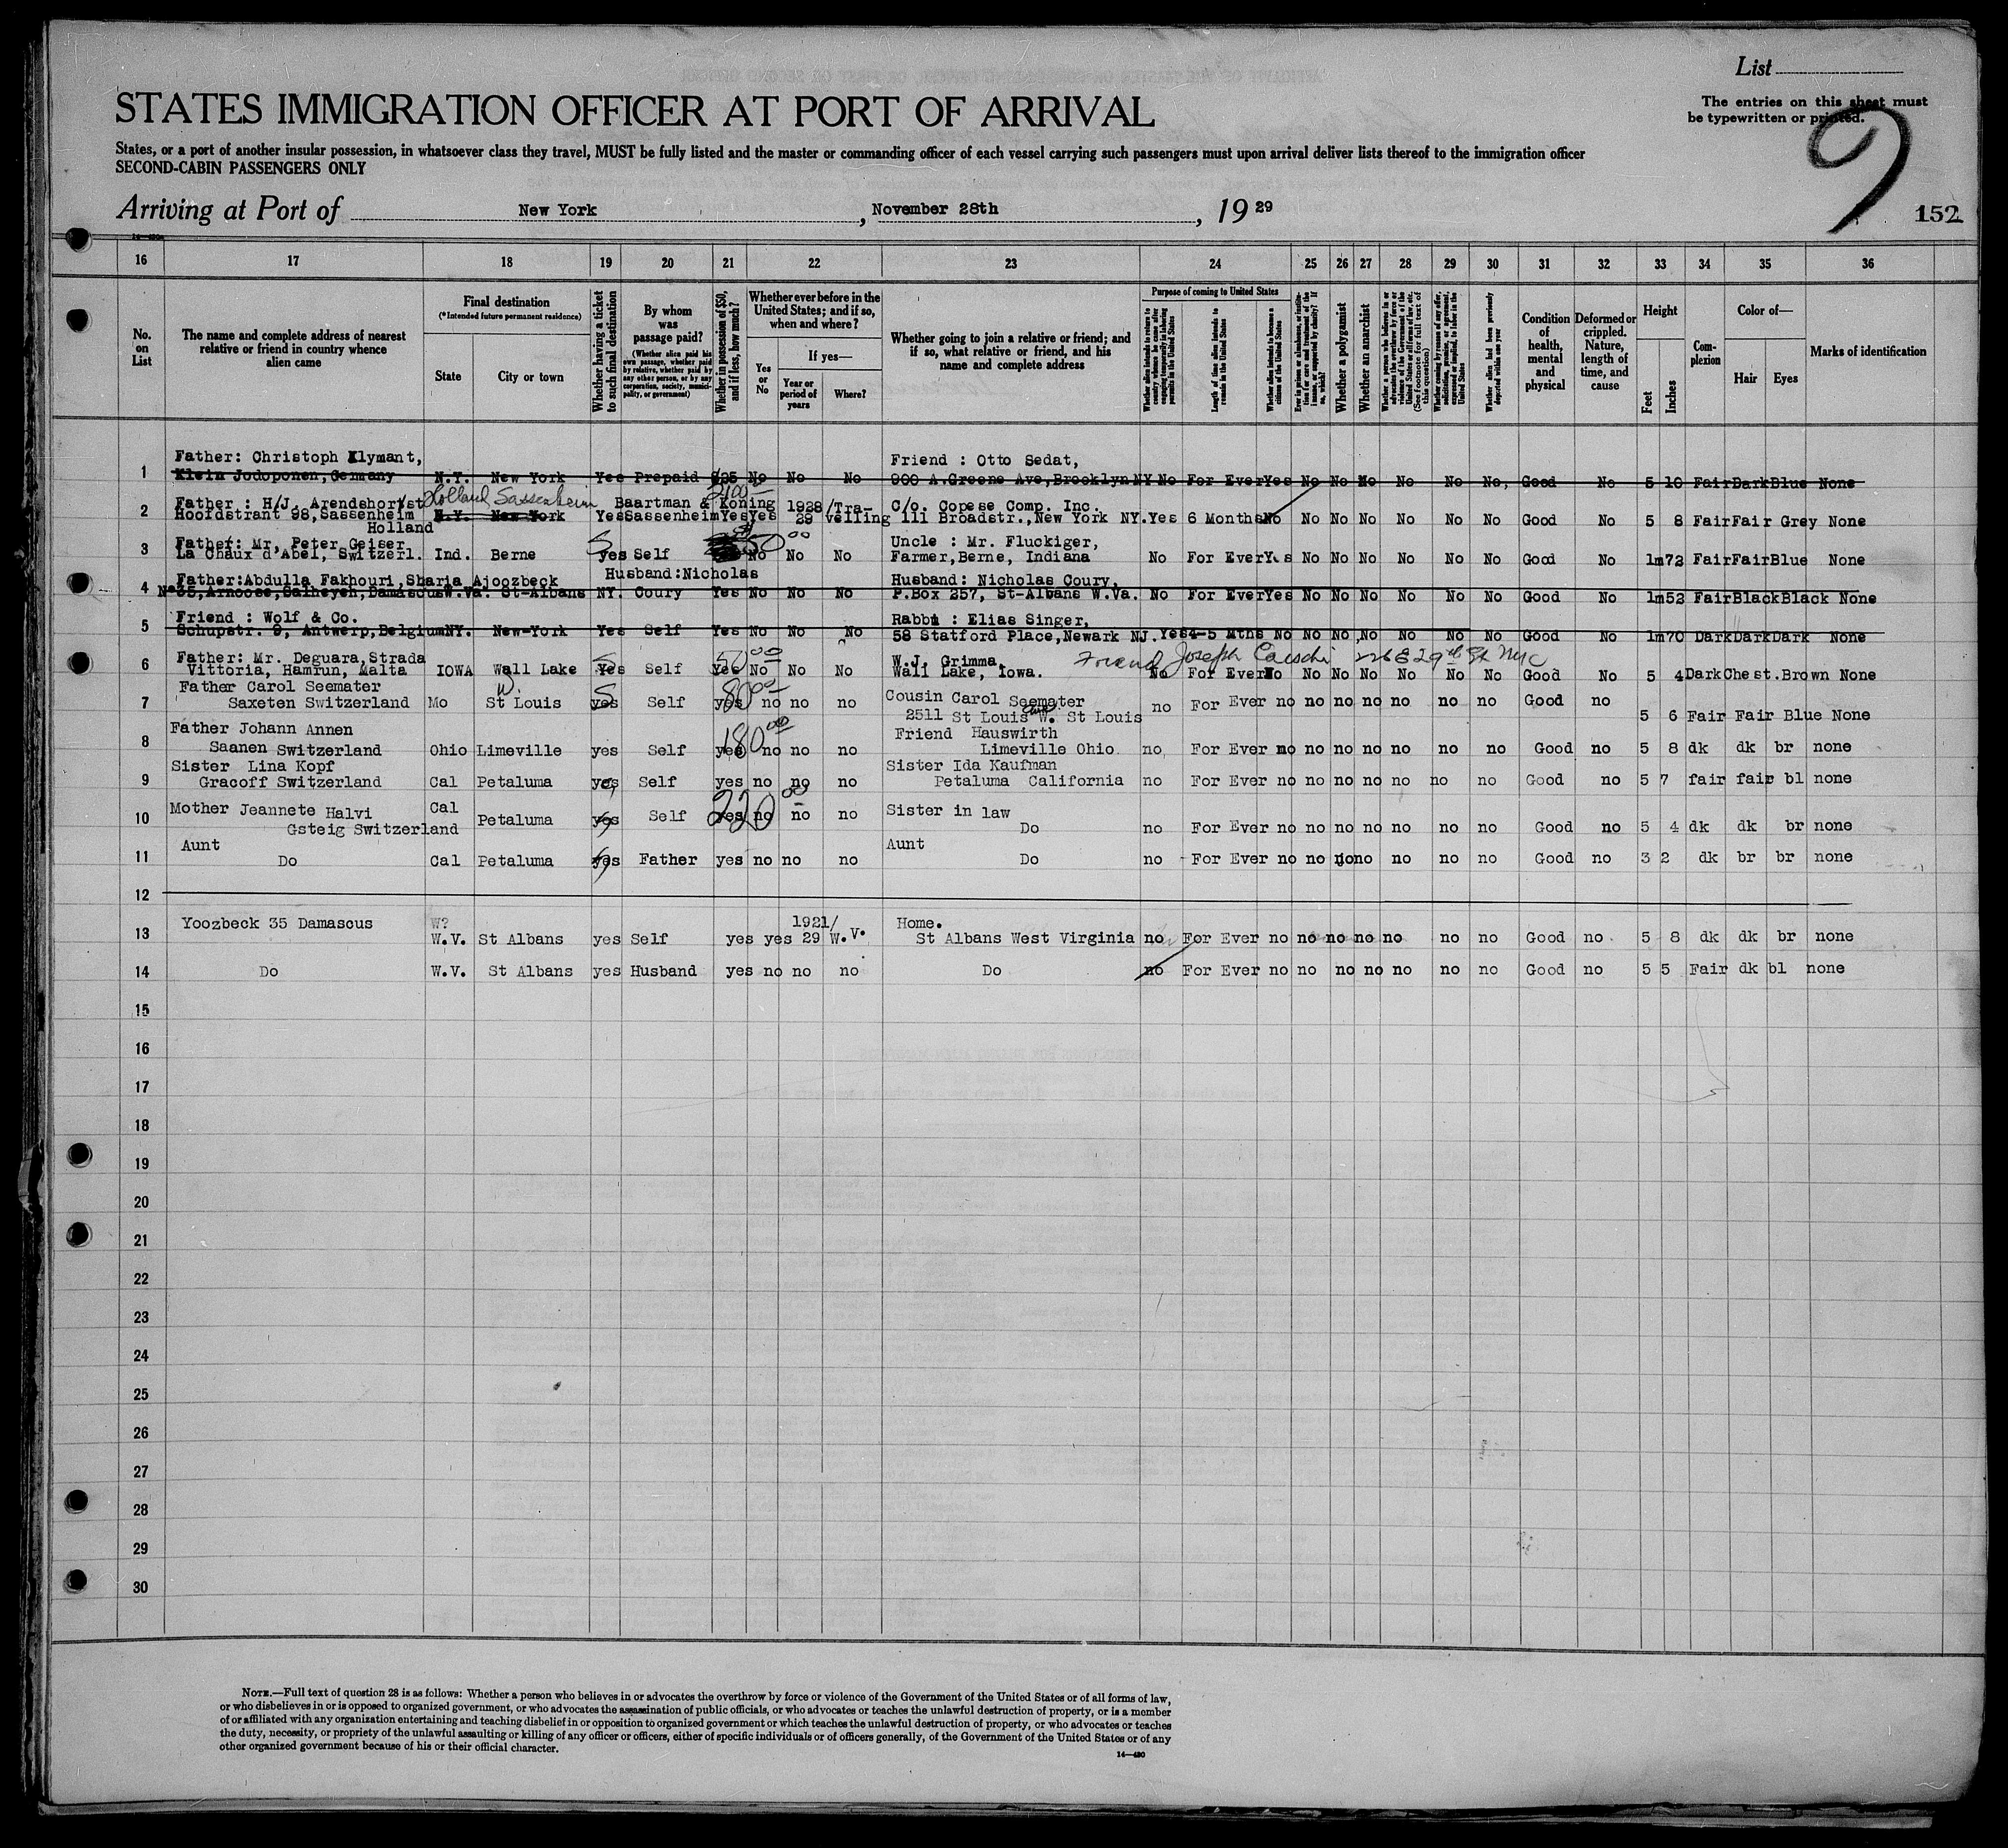 List
The entries on this sheet must
be typewritten or printed.
9
STATES IMMIGRATION OFFICER AT PORT OF ARRIVAL
States, or a port of another insular possession, in whatsoever class they travel, MUST be fully listed and the master or commanding officer of each vessel carrying such passengers must upon arrival deliver lists thereof to the immigration officer
SECOND-CABIN PASSENGERS ONLY
Arriving at Port of New York, November 28th, 19 29
152
16 17 18 19 20 21 22 23 24 25 26 27 28 29 30 31 32 33 34 35 36
No. on List
The name and complete address of nearest relative or friend in country whence alien came
Final destination
(*Intended future permanent residence)
State
City or town
Whether having a ticket to such final destination
By whom was passage paid?
(Whether alien paid his own passage, whether paid by relative, whether paid by any other person, or by any corporation, society, municipality, or government)
Whether in possession of $50, and if less, how much?
Whether ever before in the United States; and if so, when and where?
Yes or No
If yes—
Year or period of years
Where?
Whether going to join a relative or friend; and if so, what relative or friend, and his name and complete address
Purpose of coming to United States
Length of time alien intends to remain in the United States
Whether alien intends to become a citizen of the United States
Whether a polygamist
Whether an anarchist
Condition of health, mental and physical
Deformed or crippled. Nature, length of time, and cause
Height
Feet
Inches
Complexion
Color of—
Hair
Eyes
Marks of identification
Father: Christoph Klymant, Friend : Otto Sedat,
1 Klein Jodoponen, Gemany N.Y. New York Yes Prepaid $25 No No No 900 A.Greene Ave, Brooklyn NY No For Ever Yes No No No No No No, Good No 5 10 Fair Dark Blue None
Father : H/J. Arendshorst Holland Sassenheim Baartman & Koning 1928/Tra- C/o. Copese Comp. Inc.
2 Hoofdstrant 98, Sassenheim N.Y. New York Yes Sassenheim Yes Yes 29 velling 111 Broadstr., New York NY. Yes 6 Months No No No No No No No Good No 5 8 Fair Fair Grey None
Holland
Father: Mr, Peter Geiser Uncle : Mr. Fluckiger,
3 La Chaux d'Abel, Switzerl. Ind. Berne yes Self 50 00 No No No Farmer, Berne, Indiana No For Ever Yes No No No No No No Good No 1m73 Fair Fair Blue None
Father: Abdulla Fakhouri, Sharia Ajoozbeck Husband: Nicholas Husband: Nicholas Coury,
4 No 35, Arnoose, Salheyeh, Damascus W.Va. St-Albans NY. Coury Yes No No No P.Box 257, St-Albans W.Va. No For Ever Yes No No No No No No Good No 1m52 Fair Black Black None
Friend : Wolf & Co. Rabbi : Elias Singer,
5 Schupstr. 9, Antwerp, Belgium NY. New-York Yes Self Yes No No No 58 Statford Place, Newark NJ. Yes 4-5 Mths No No No No No No No Good No 1m70 Dark Dark Dark None
Father: Mr. Deguara, Strada W.J. Grimma, Friend Joseph Caeschi 226 E 29th St NYC
6 Vittoria, Hamrun, Malta IOWA Wall Lake Yes Self 50 00 Yes No No No Wall Lake, Iowa. No For Ever No No No No No No No Good No 5 4 Dark Chest. Brown None
Father Carol Seemater Cousin Carol Seemater
7 Saxeten Switzerland Mo W. St Louis yes Self 80 00 yes no no no 2511 St Louis Ave W. St Louis no For Ever no no no no no no no Good no 5 6 Fair Fair Blue None
Father Johann Annen Friend Hauswirth
8 Saanen Switzerland Ohio Limeville yes Self 180 00 yes no no no Limeville Ohio. no For Ever no no no no no no no Good no 5 8 dk dk br none
Sister Lina Kopf Sister Ida Kaufman
9 Gracoff Switzerland Cal Petaluma yes Self yes no no no Petaluma California no For Ever no no no no no no no Good no 5 7 fair fair bl none
Mother Jeannete Halvi Sister in law
10 Gsteig Switzerland Cal Petaluma yes Self 220 00 yes no no no Do no For Ever no no no no no no no Good no 5 4 dk dk br none
Aunt Aunt
11 Do Cal Petaluma yes Father yes no no no Do no For Ever no no no no no no no Good no 3 2 dk br br none
12
Yoozbeck 35 Damascus W? 1921/ Home.
13 W.V. St Albans yes Self yes yes 29 W.V. St Albans West Virginia no For Ever no no no no no no no Good no 5 8 dk dk br none
14 Do W.V. St Albans yes Husband yes no no no Do no For Ever no no no no no no no Good no 5 5 Fair dk bl none
15
16
17
18
19
20
21
22
23
24
25
26
27
28
29
30
NOTE.—Full text of question 28 is as follows: Whether a person who believes in or advocates the overthrow by force or violence of the Government of the United States or of all forms of law,
or who disbelieves in or is opposed to organized government, or who advocates the assassination of public officials, or who advocates or teaches the unlawful destruction of property, or is a member
of or affiliated with any organization entertaining and teaching disbelief in or opposition to organized government or which teaches the unlawful destruction of property, or who advocates or teaches
the duty, necessity, or propriety of the unlawful assaulting or killing of any officer or officers, either of specific individuals or of officers generally, of the Government of the United States or of any
other organized government because of his or their official character.
14—430